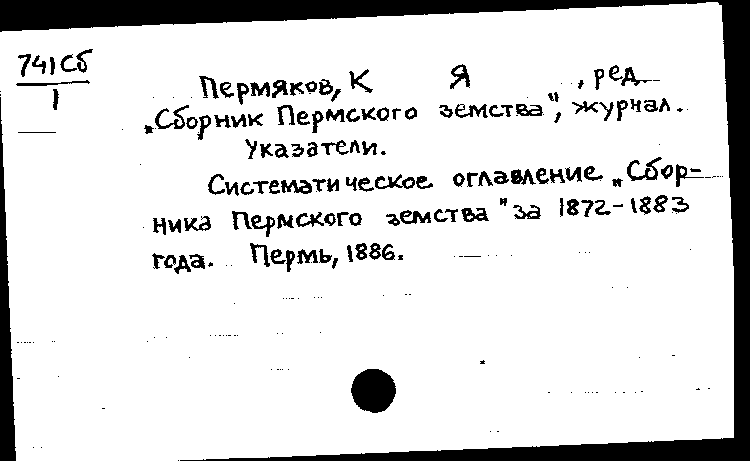 741Сб
1
Пермяков, К Я , ред.
„Сборник Пермского земства", журнал.
Указатели.
Систематическое оглавление „Сбор-
ника Пермского земства" за 1872-1883
года. Пермь, 1886.